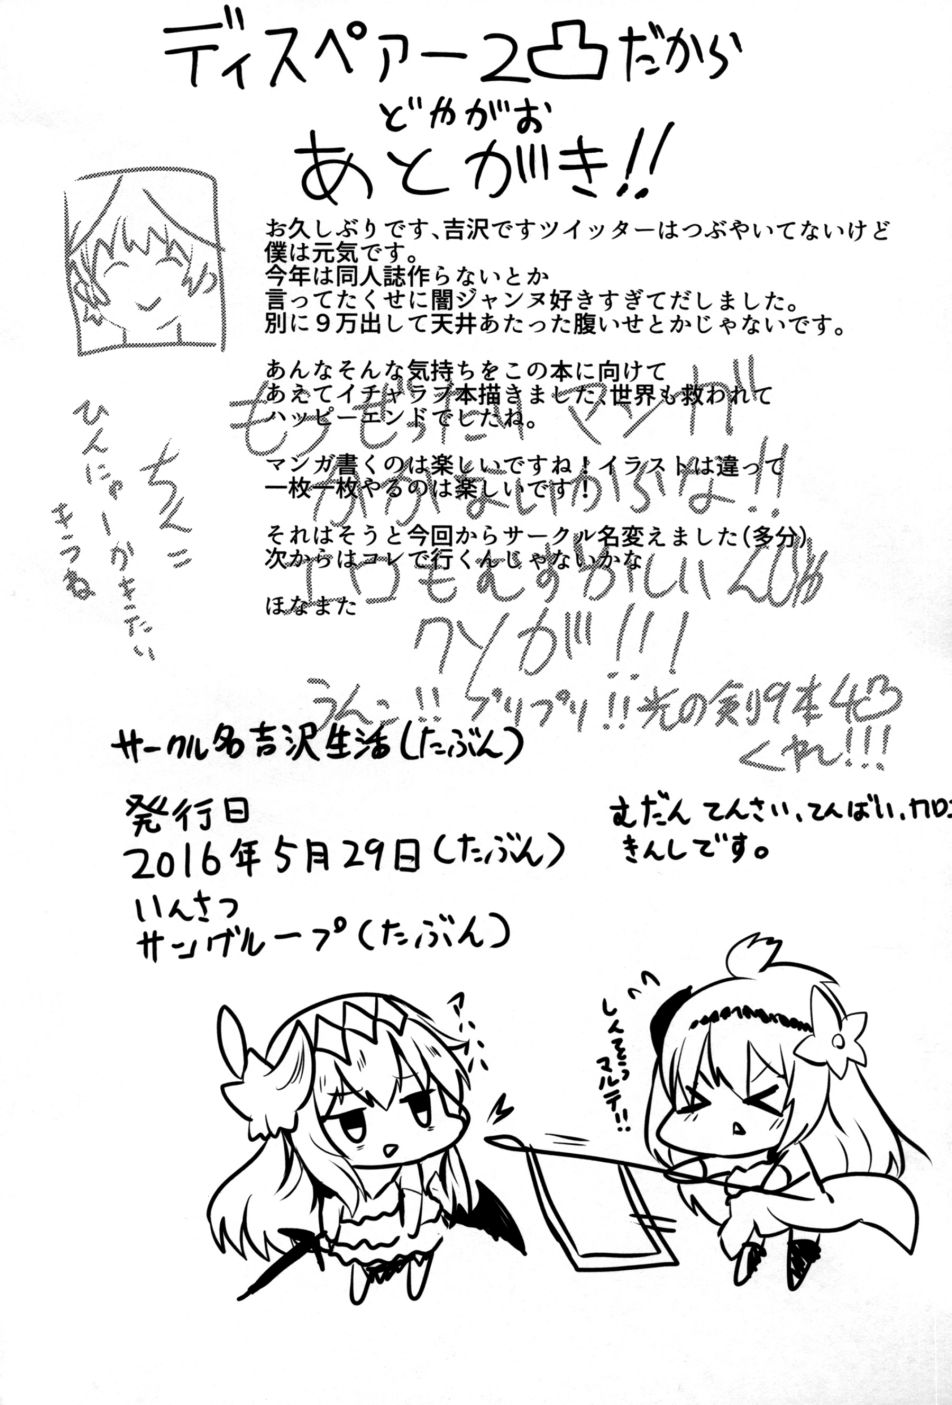 ディスペアー2凸だから
どやがお
あとがき!!
お久しぶりです、吉沢ですツイッターはつぶやいてないけど
僕は元気です。
今年は同人誌作らないとか
言ってたくせに闇ジャンヌ好きすぎてだしました。
別に９万出して天井あたった腹いせとかじゃないです。
あんなそんな気持ちをこの本に向けて
あえてイチャラブ本描きました、世界も救われて
ハッピーエンドでしたね。
マンガ書くのは楽しいですね！イラストは違って
一枚一枚やるのは楽しいです！
それはそうと今回からサークル名変えました(多分)
次からはコレで行くんじゃないかな
ほなまた
もうぜったいマンガ
かかないからな!!
エロもむずかしいんじゃ
クソが!!!
うんこ!!ブリブリ!!光の剣9本4凸
くやしー!!!
ちんこ
ひんにゅーかきたい
キラね
サークル名吉沢生活(たぶん)
発行日
2016年5月29日(たぶん)
いんさつ
サングループ(たぶん)
むだん てんさい、てんばい、
きんしです。
マルテ!!